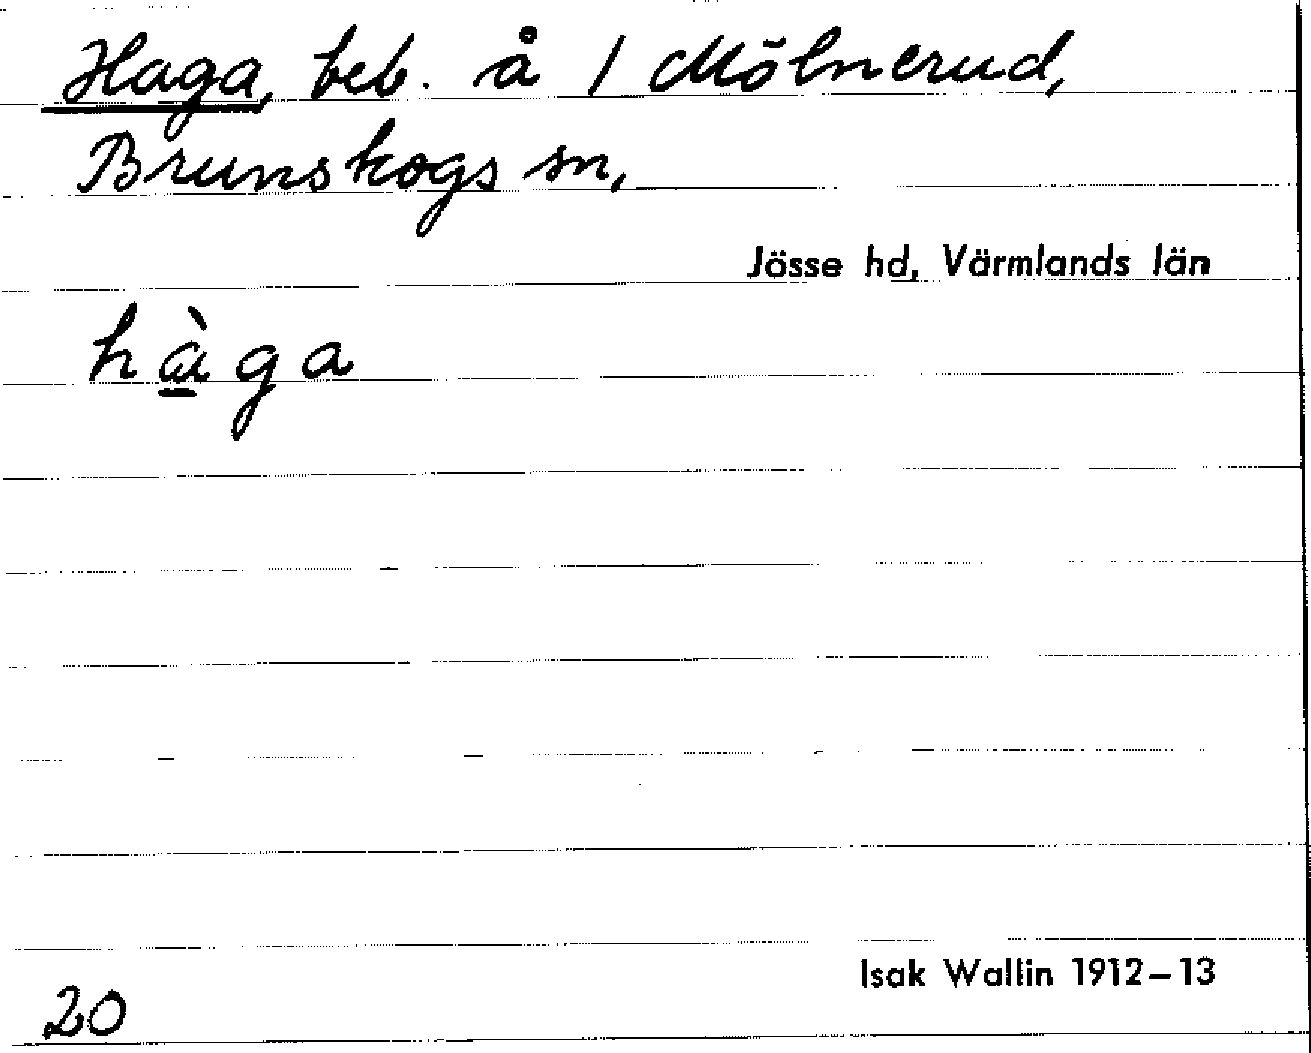 Haga, beb. å 1 Mölnerud,
Brunskogs sn,
Jösse hd, Värmlands län
hàga
Isak Wallin 1912–13
20